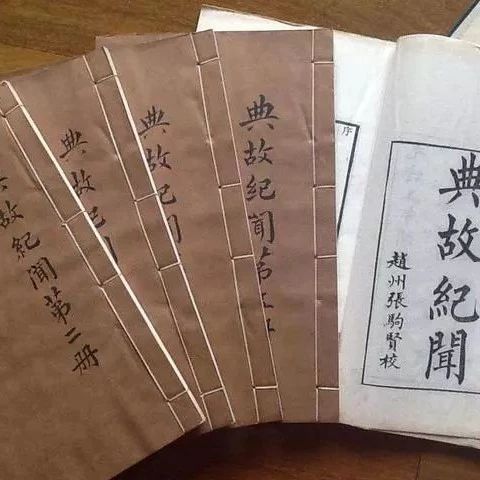 典故紀聞第二册
典故紀
典故紀
典故紀聞第五
序
典故紀聞
趙州張駒賢校